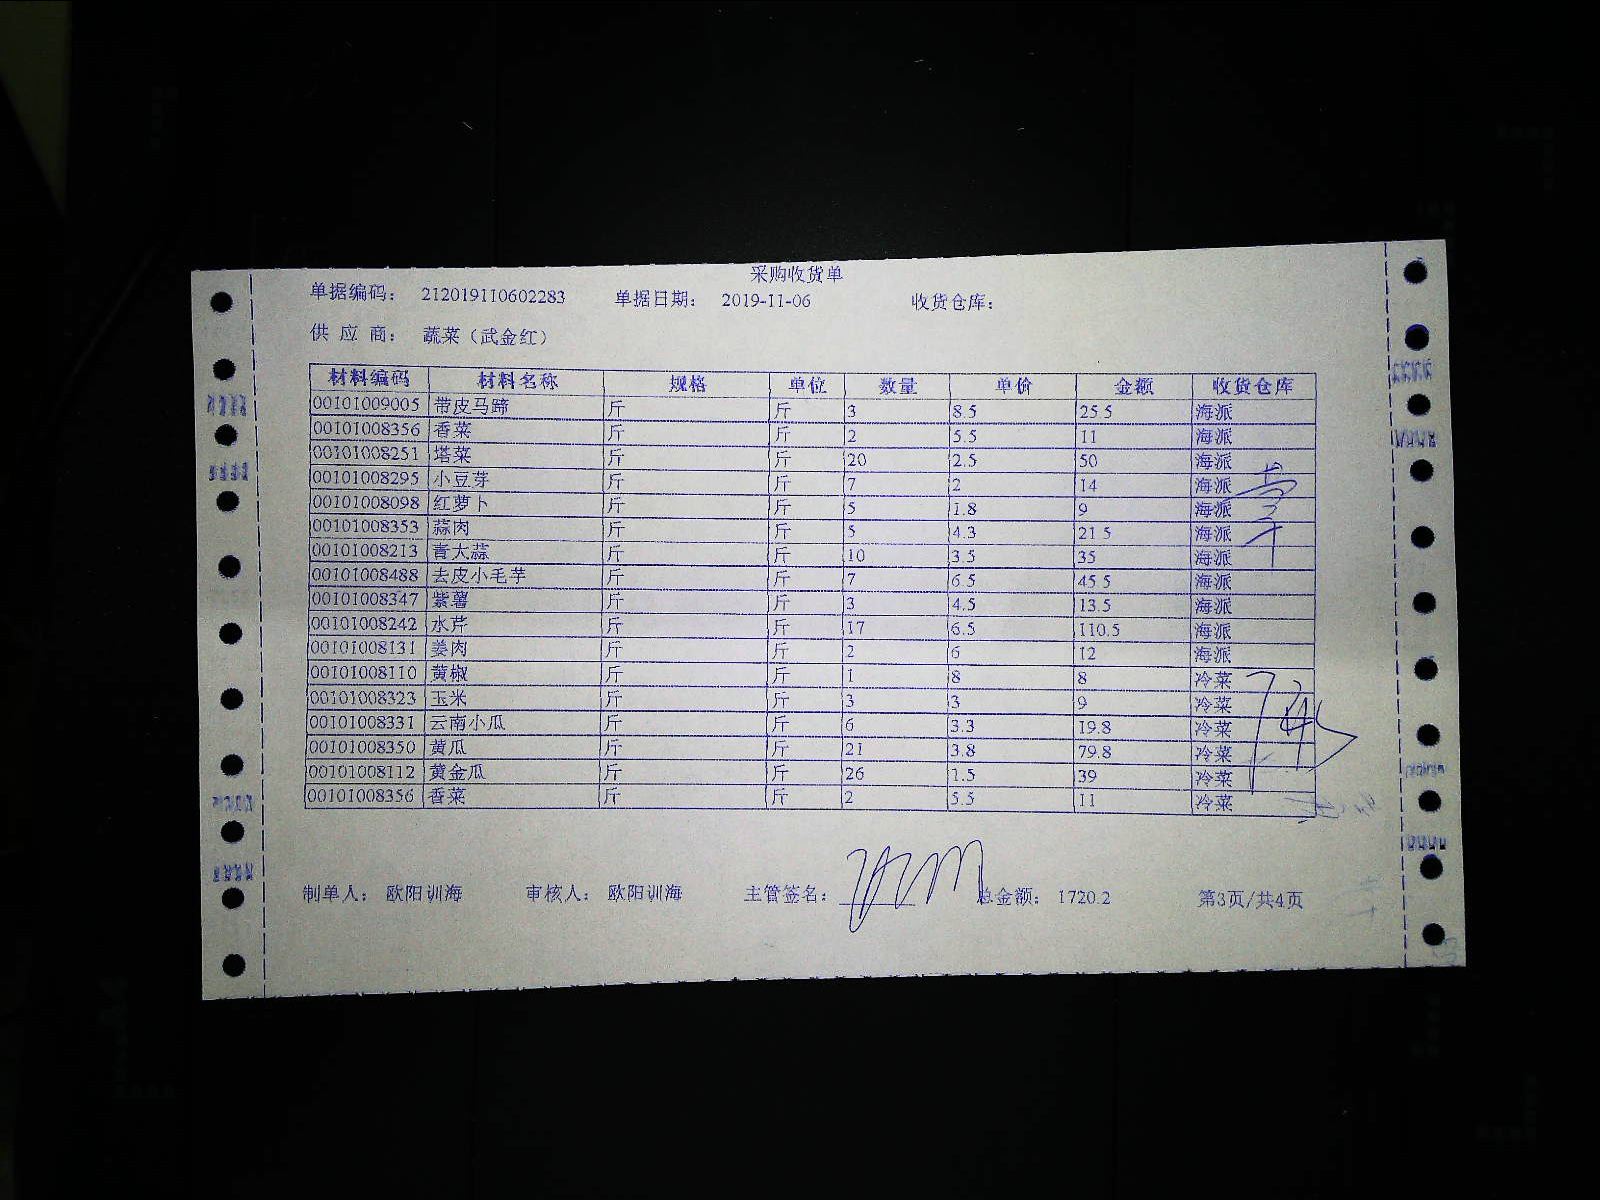 采购收货单
单据编码： 212019110602283 单据日期： 2019-11-06 收货仓库：
供 应 商： 蔬菜（武金红）
材料编码 材料名称 规格 单位 数量 单价 金额 收货仓库
00101009005 带皮马蹄 斤 斤 3 8.5 25.5 海派
00101008356 香菜 斤 斤 2 5.5 11 海派
00101008251 塔菜 斤 斤 20 2.5 50 海派
00101008295 小豆芽 斤 斤 7 2 14 海派
00101008098 红萝卜 斤 斤 5 1.8 9 海派
00101008353 蒜肉 斤 斤 5 4.3 21.5 海派
00101008213 青大蒜 斤 斤 10 3.5 35 海派
00101008488 去皮小毛芋 斤 斤 7 6.5 45.5 海派
00101008347 紫薯 斤 斤 3 4.5 13.5 海派
00101008242 水芹 斤 斤 17 6.5 110.5 海派
00101008131 姜肉 斤 斤 2 6 12 海派
00101008110 黄椒 斤 斤 1 8 8 冷菜
00101008323 玉米 斤 斤 3 3 9 冷菜
00101008331 云南小瓜 斤 斤 6 3.3 19.8 冷菜
00101008350 黄瓜 斤 斤 21 3.8 79.8 冷菜
00101008112 黄金瓜 斤 斤 26 1.5 39 冷菜
00101008356 香菜 斤 斤 2 5.5 11 冷菜
制单人： 欧阳训海 审核人： 欧阳训海 主管签名： 总金额： 1720.2 第3页/共4页